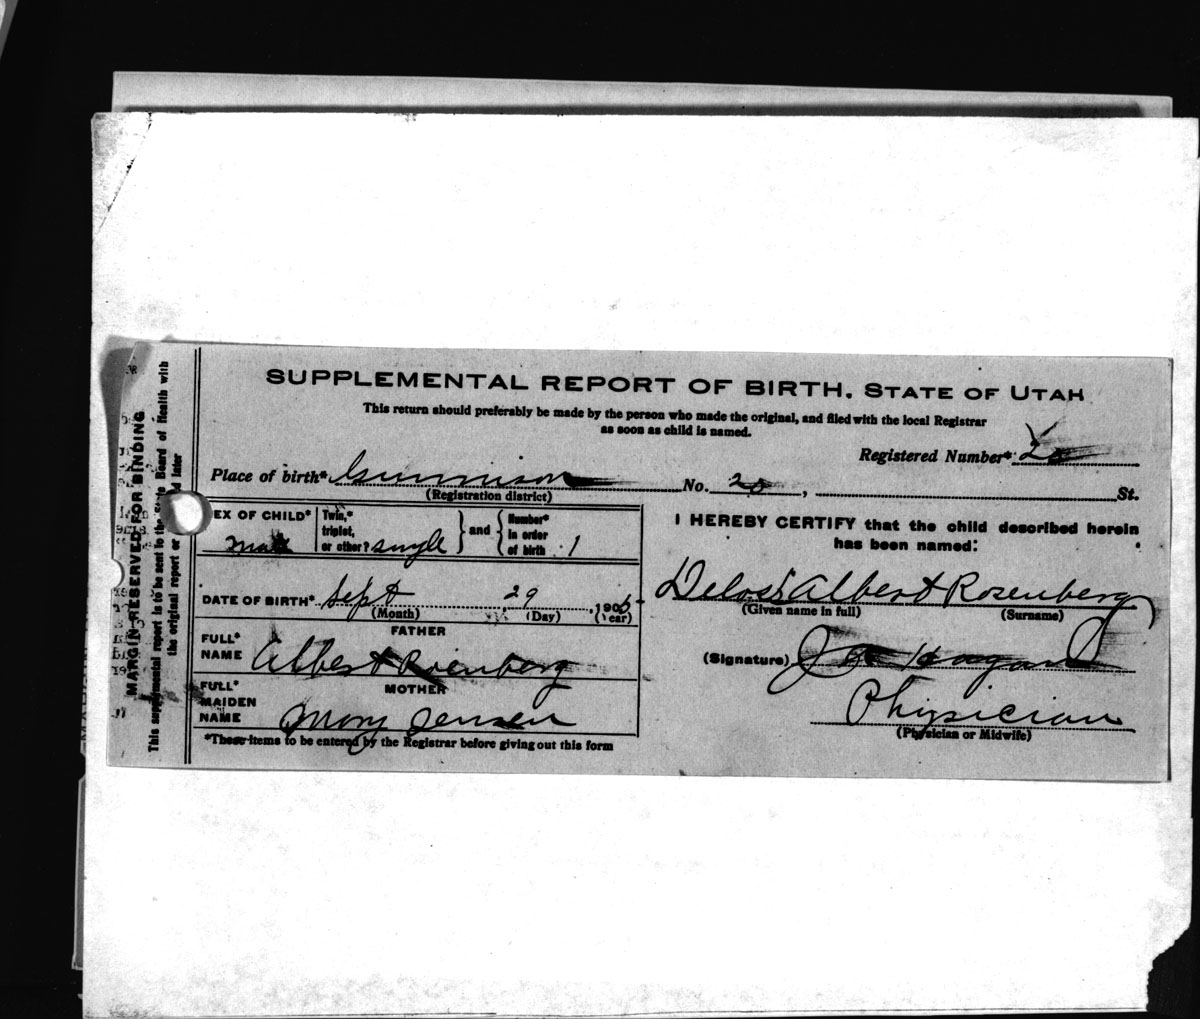 SUPPLEMENTAL REPORT OF BIRTH. STATE OF UTAH
This return should preferably be made by the person who made the original, and filed with the local Registrar
as soon as child is named.
Registered Number* 20
Place of birth* Gunnison No. 20, St.
(Registration district)
EX OF CHILD* Male
Twin,* triplet, or other? single } and { Number* in order of birth 1
DATE OF BIRTH* Sept 29, 190
(Month) (Day) (Year)
FATHER
FULL* NAME Albert Rosenberg
MOTHER
FULL* MAIDEN NAME Mary Jensen
*These items to be entered by the Registrar before giving out this form
I HEREBY CERTIFY that the child described herein
has been named:
Deloss Albert Rosenberg
(Given name in full) (Surname)
(Signature) Hagan
Physician
(Physician or Midwife)
MARGIN RESERVED FOR BINDING
This supplemental report is to be sent to the State Board of Health with
the original report or later